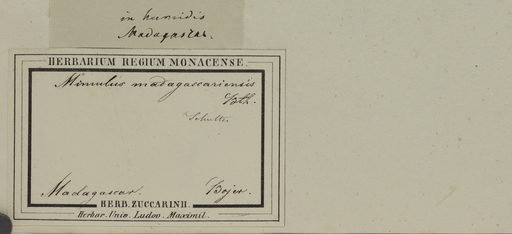 in humidis
Madagascar.
HERBARIUM REGIUM MONACENSE.
Mimulus madagascariensis
Bth.
Schultes.
Madagascar. Bojer.
HERB. ZUCCARINII.
Herbar. Univ. Ludov. Maximil.